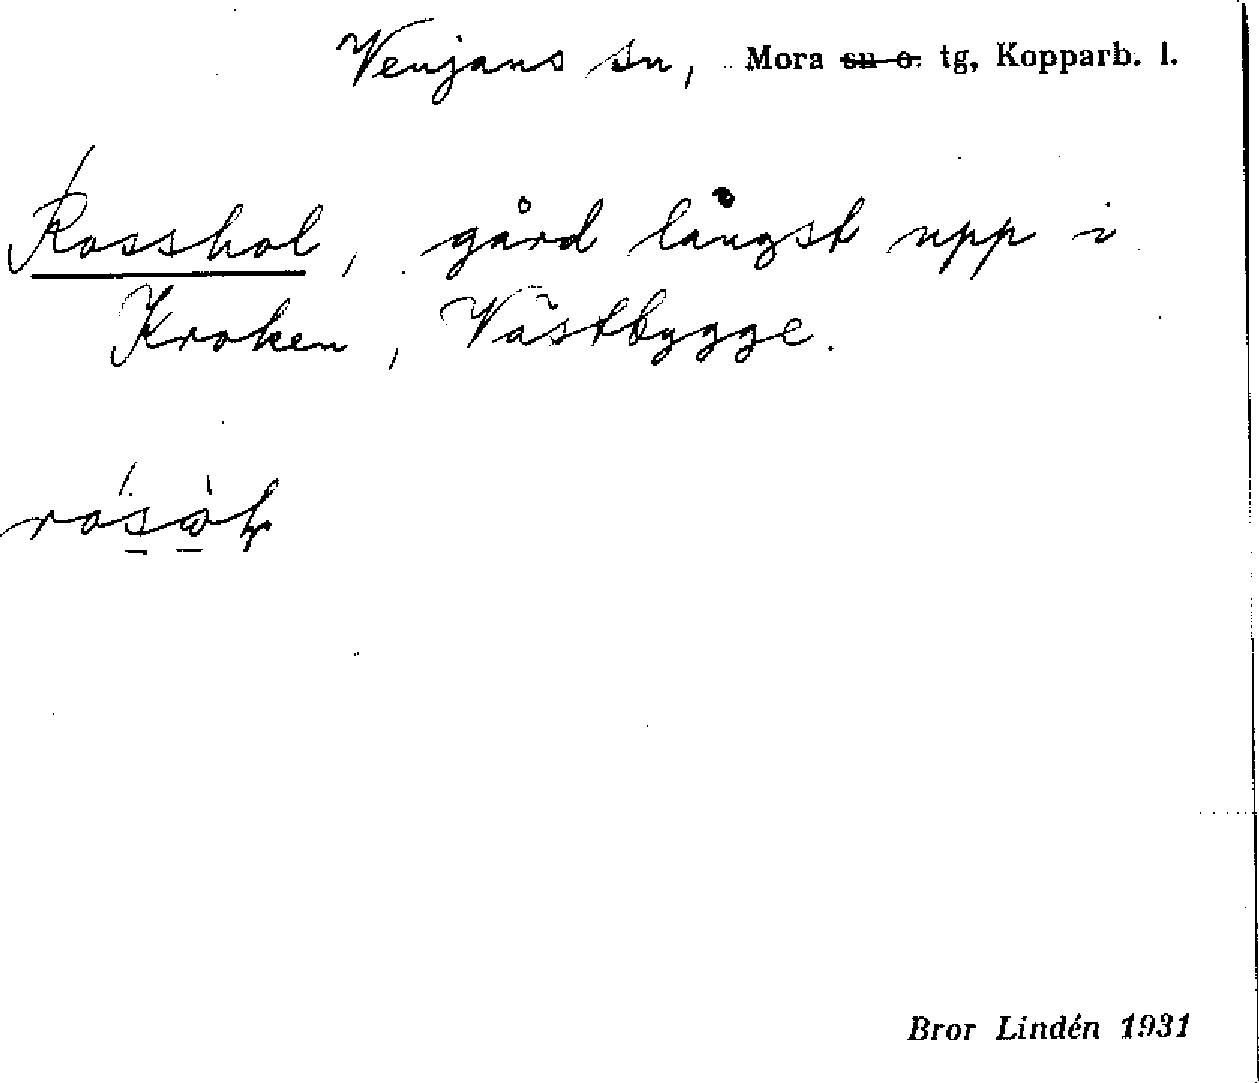 Venjans sn, Mora sn o. tg, Kopparb. l.
Rosshol, gård längst upp i
Kroken, Västbygge.
Bror Lindén 1931